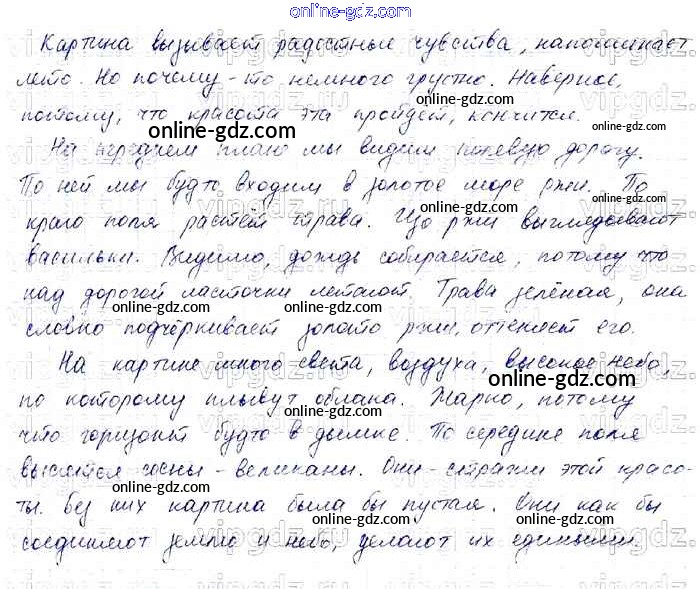 online-gdz.com
Картина вызывает радостные чувства, напоминает
лето. Но почему-то немного грустно. Наверное,
потому, что красота эта пройдет, кончится.
online-gdz.com online-gdz.com
На переднем плане мы видим полевую дорогу.
По ней мы будто входим в золотое море ржи. По
online-gdz.com
краю поля растёт трава. Изо ржи выглядывают
online-gdz.com
васильки. Видимо, дождь собирается, потому что
online-gdz.com
над дорогой ласточки летают. Трава зелёная, она
online-gdz.com
словно подчёркивает золото ржи, оттеняет его.
На картине много света, воздуха, высокое небо,
online-gdz.com
по которому плывут облака. Жарко, потому
online-gdz.com
что горизонт будто в дымке. По середине поля
высятся сосны-великаны. Они-стражи этой красо-
online-gdz.com
ты. Без них картина была бы пустая. Они как бы
online-gdz.com
соединяют землю и небо, делают их едиными.